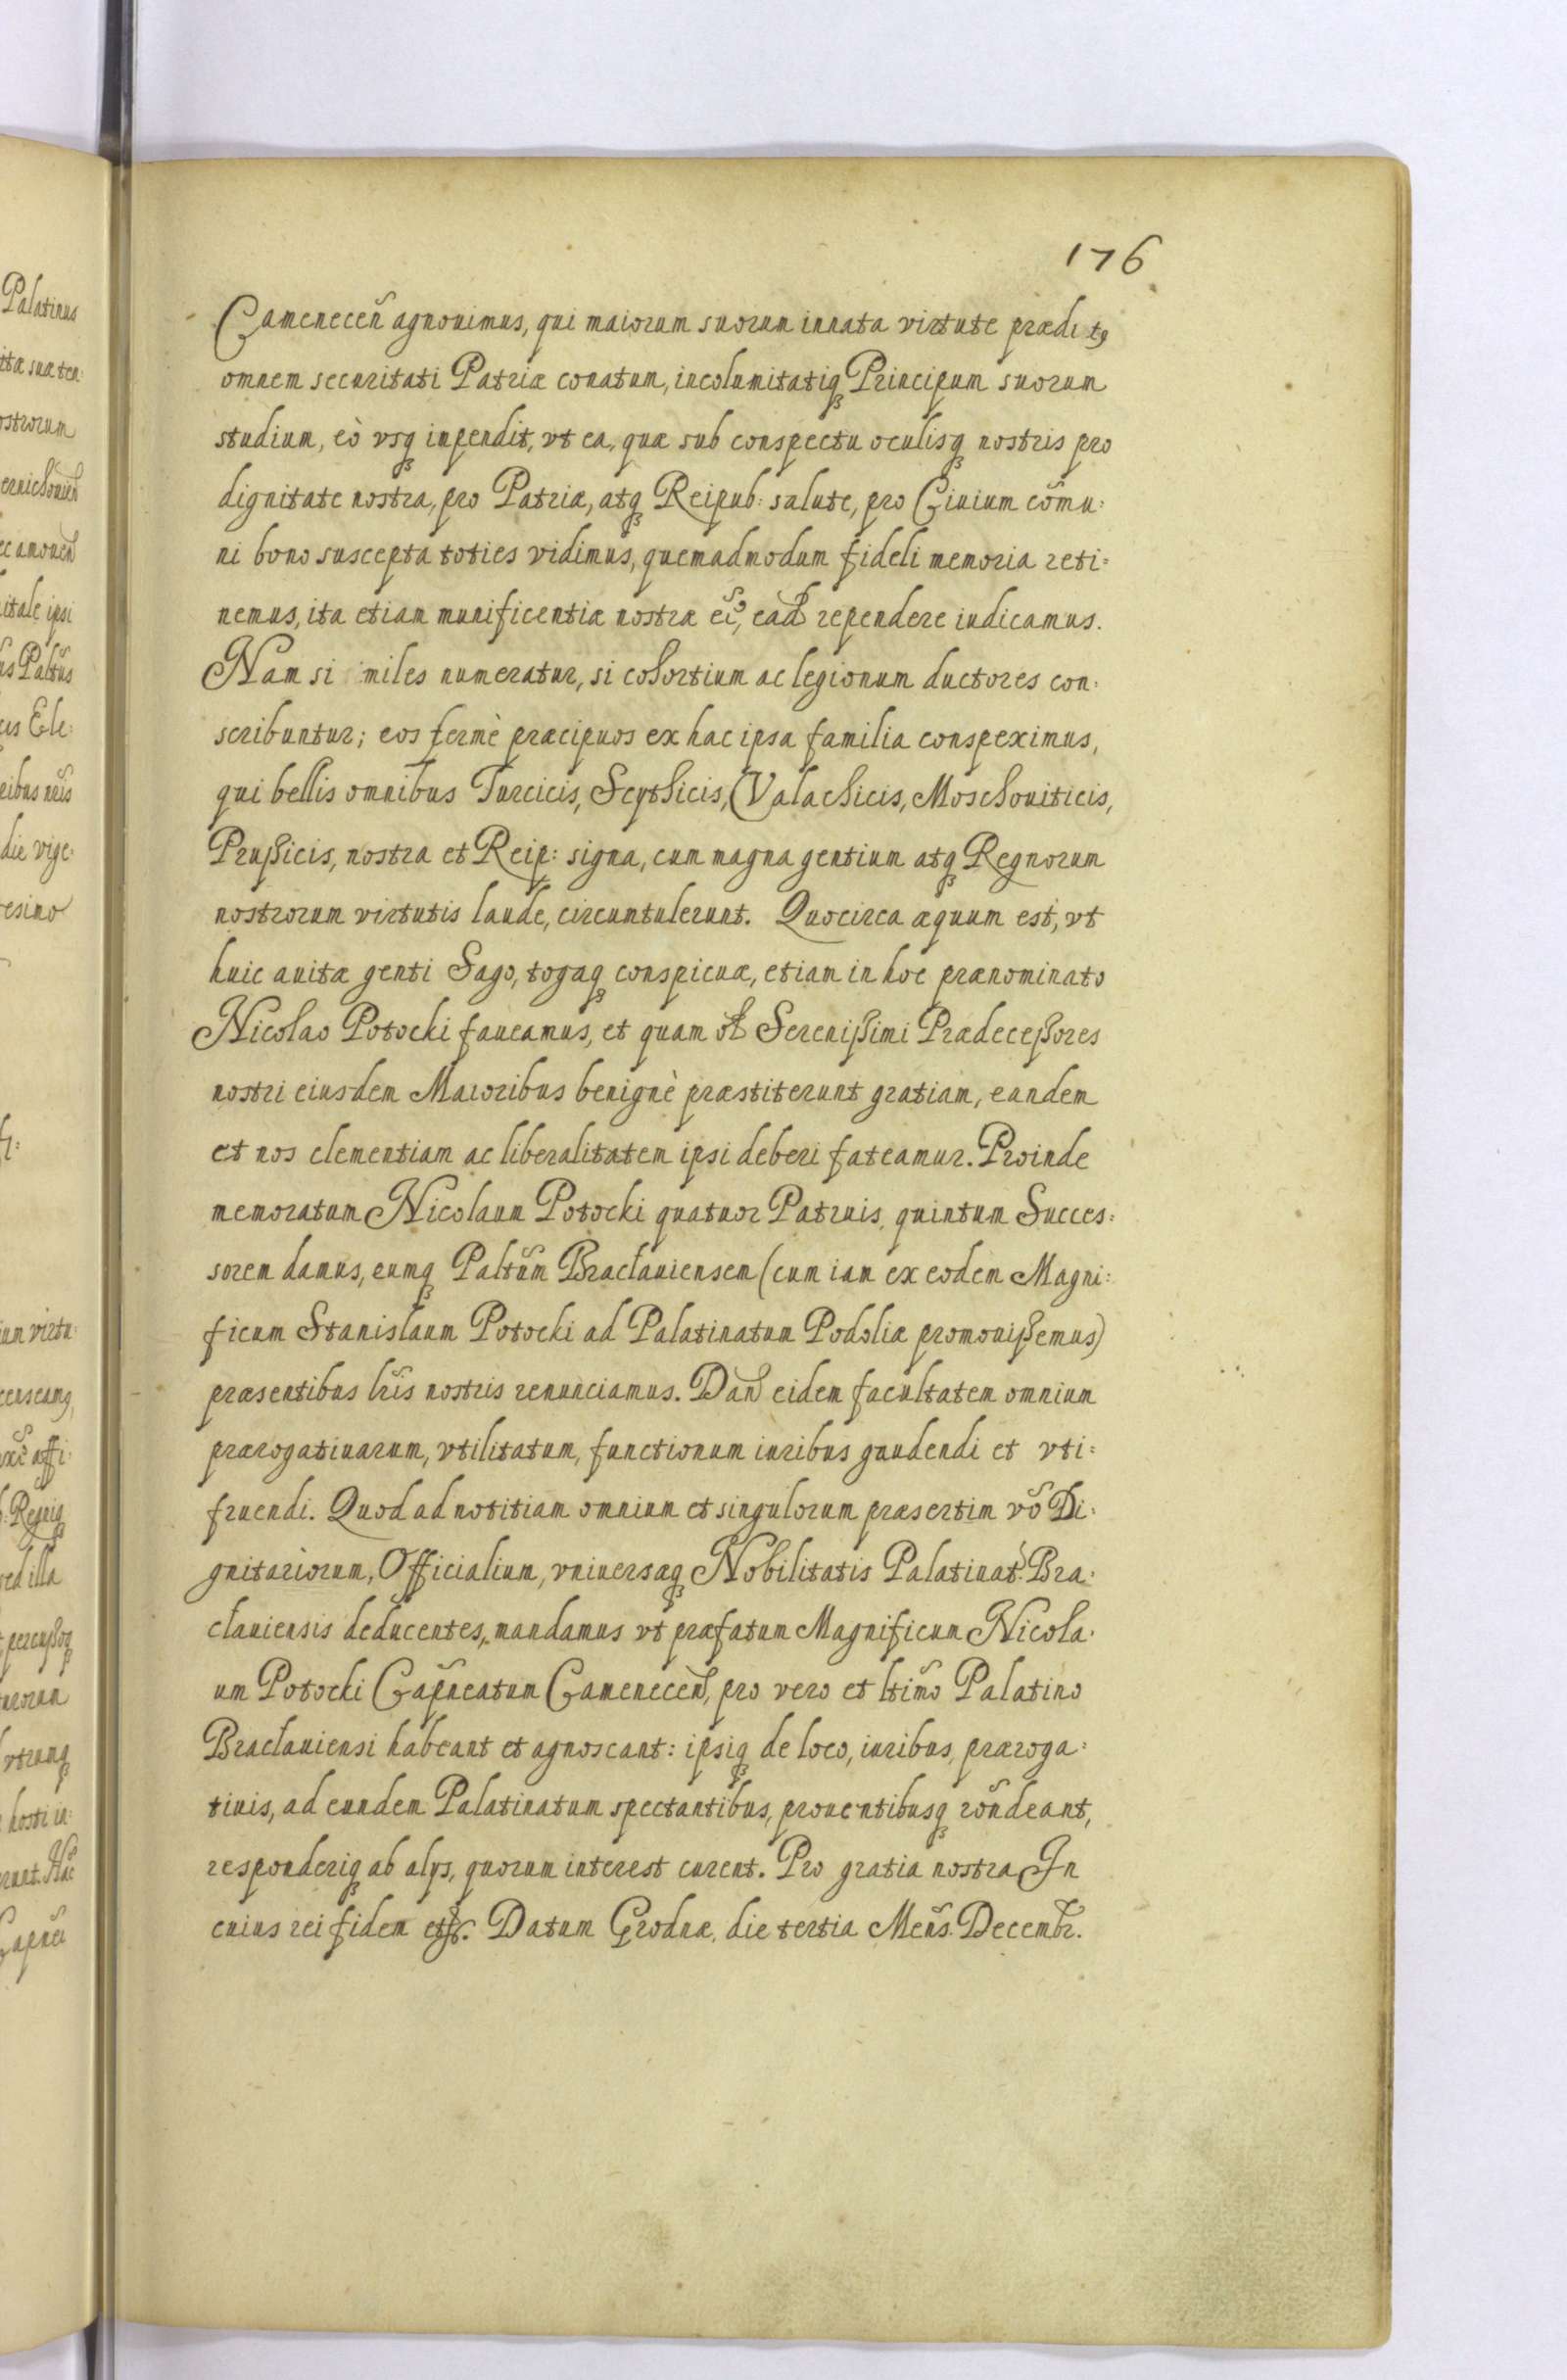 176
Camenecen̄ agnouimus, qui maiorum suorum innata virtute prædit9
omnem securitati Patriæ conatum, incolumitatiqꝫ Principum suorum
studium, eò vsqꝫ inpendit, vt ea, quæ sub conspectu oculisqꝫ nostris pro
dignitate nostra, pro Patriæ, atqꝫ Reipub: salute, pro Ciuium com̄u:
ni bono suscepta toties vidimus, quemadmodum fideli memoria reti=
nemus, ita etiam munificentiæ nostræ ei9, ead rependere iudicamus.
Nam si miles numeratur, si cohortium ac legionum ductores con:
scribuntur; eos fermè præcipuos ex hac ipsa familia conspeximus,
qui bellis omnibus Turcicis, Scythicis, Valachicis, Moschouiticis,
Prußicis, nostra et Reip: signa, cum magna gentium atqꝫ Regnorum
nostrorum virtutis laude, circumtulerunt. Quocirca æquum est, vt
huic auitæ genti Sago, togaqꝫ conspicuæ, etiam in hoc prænominato
Nicolao Potocki faueamus, et quam ol Serenißimi Prædeceßores
nostri eiusdem Maioribus benignè præstiterunt gratiam, eandem
et nos clementiam ac liberalitatem ipsi deberi fateamur. Proinde
memoratum Nicolaum Potocki quatuor Patruis, quintum Succes:
sorem damus, eumqꝫ Paltūm Braclauiensem (cum iam ex eodem Magni:
ficum Stanislaum Potocki ad Palatinatum Podoliæ promouißemus)
præsentibus lr̄is nostris renunciamus. Dan̄ eidem facultatem omnium
prærogatiuarum, vtilitatum, functionum iuribus gaudendi et vti=
fruendi. Quod ad notitiam omnium et singulorum præsertim vō Di:
gnitariorum, Officialium, vniuersæqꝫ Nobilitatis Palatinat: Bra:
clauiensis deducentes, mandamus vt præfatum Magnificum Nicola:
um Potocki Capn̄eatum Camenecen̄, pro vero et ltim̄o Palatino
Braclauiensi habeant et agnoscant: ipsiqꝫ de loco, iuribus, præroga:
tiuis, ad eundem Palatinatum spectantibus, prouentibusqꝫ rōndeant,
responderiqꝫ ab alys, quorum interest curent. Pro gratia nostra In
cuius rei fidem etc. Datum Grodnæ, die tertia Mens̄. Decembr.